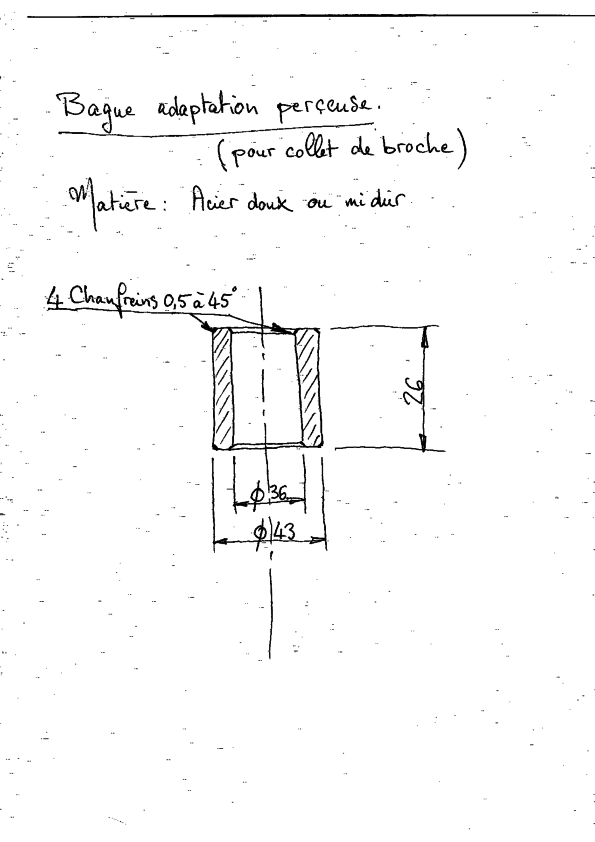 Bague adaptation perçeuse.
(pour collet de broche)
Matière : Acier doux ou mi dur
4 Chanfreins 0,5 à 45°
26
ϕ 36
ϕ 43